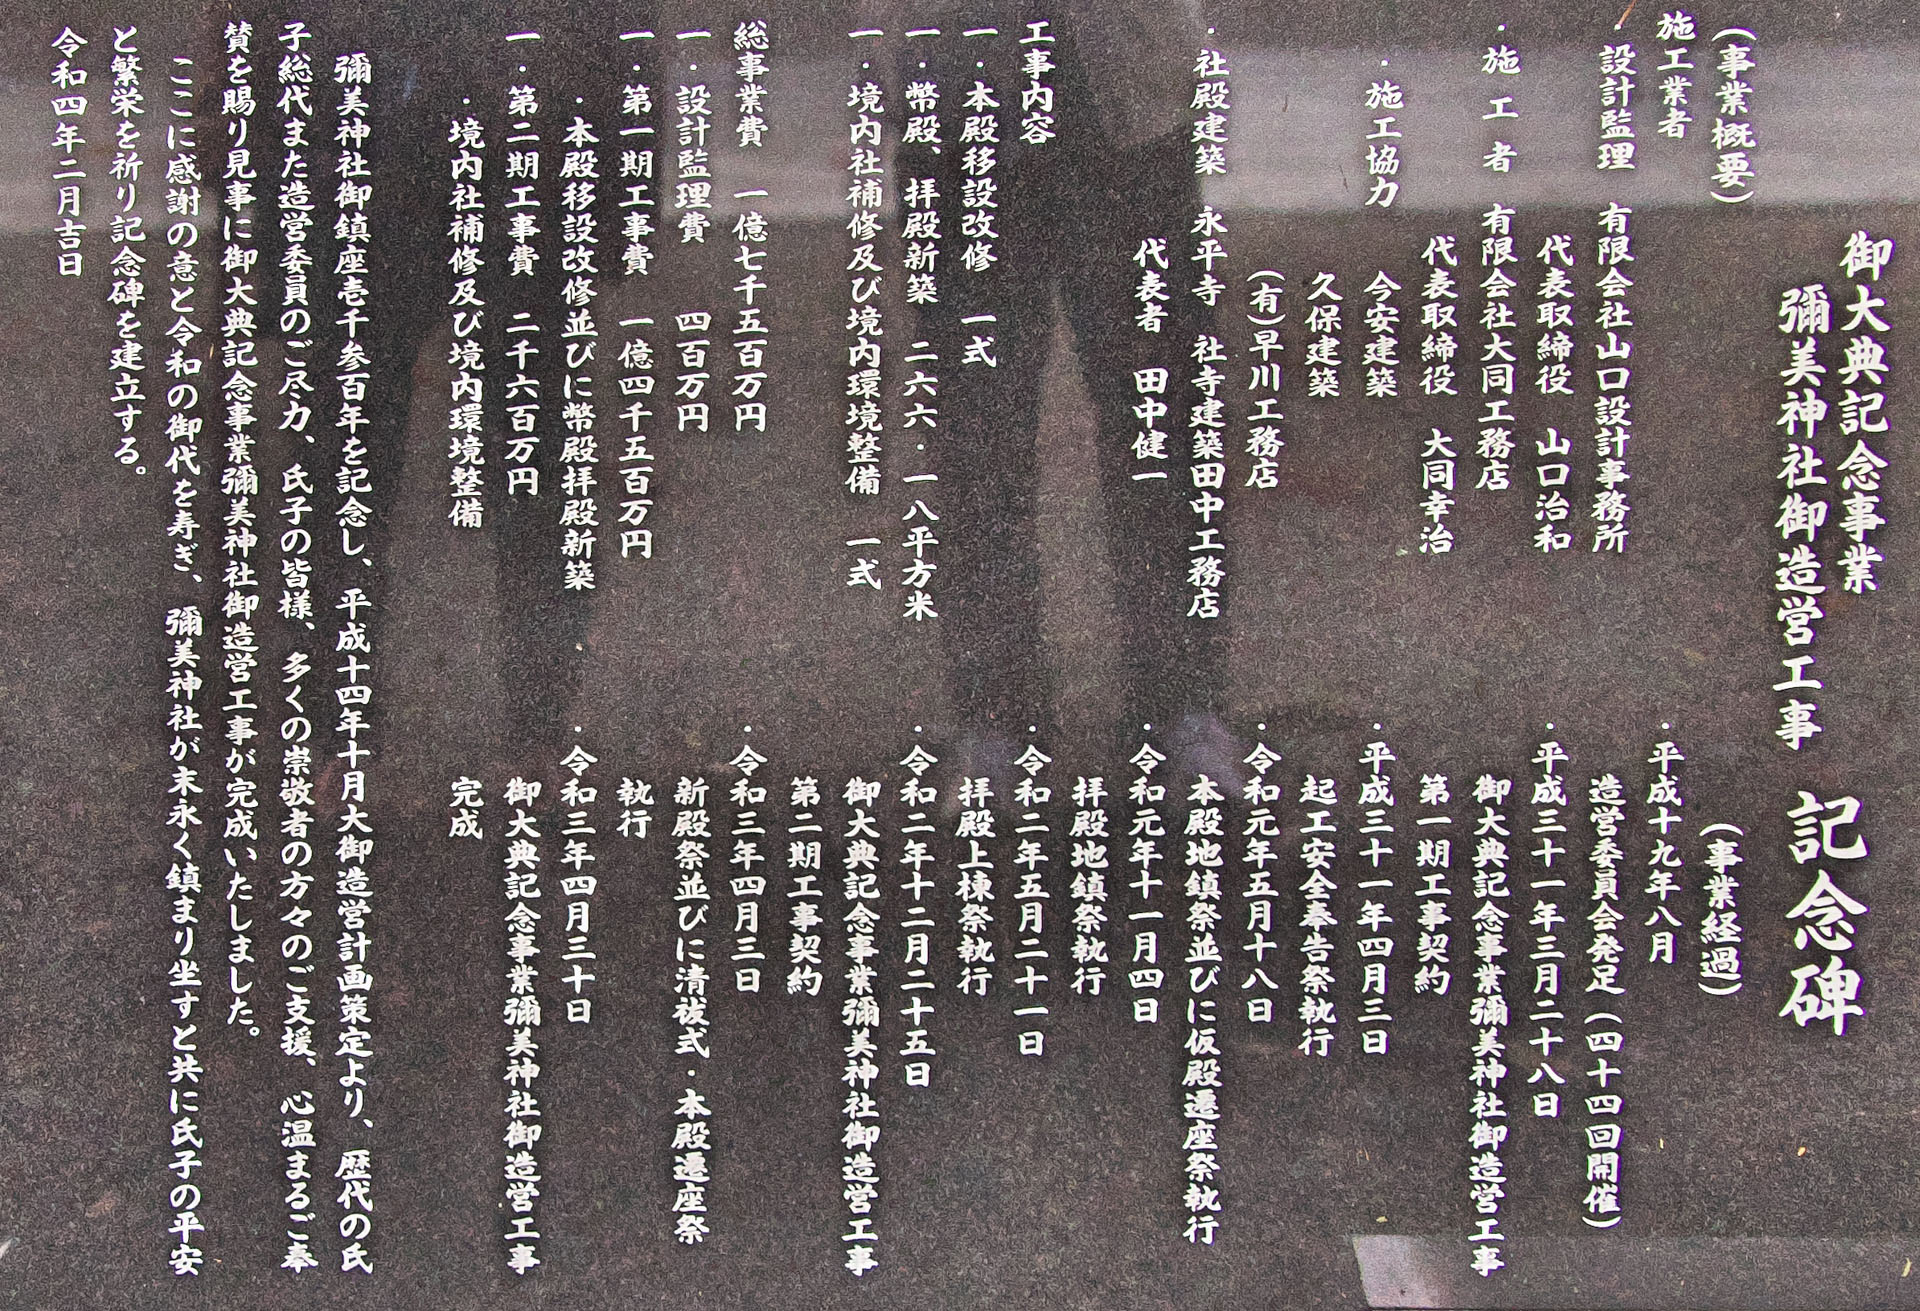 御大典記念事業
彌美神社御造営工事　記念碑
(事業概要)
施工業者
・設計監理　有限会社山口設計事務所
代表取締役　山口治和
・施工者　有限会社大同工務店
代表取締役　大同幸治
・施工協力　今安建築
久保建築
(有)早川工務店
・社殿建築　永平寺　社寺建築田中工務店
代表者　田中健一
工事内容
一．本殿移設改修　一式
一．幣殿、拝殿新築　二六六・一八平方米
一．境内社補修及び境内環境整備　一式
総事業費　一億七千五百万円
一．設計監理費　四百万円
一．第一期工事費　一億四千五百万円
・本殿移設改修並びに幣殿拝殿新築
一．第二期工事費　二千六百万円
・境内社補修及び境内環境整備
(事業経過)
・平成十九年八月
造営委員会発足(四十四回開催)
・平成三十一年三月二十八日
御大典記念事業彌美神社御造営工事
第一期工事契約
・平成三十一年四月三日
起工安全奉告祭執行
・令和元年五月十八日
本殿地鎮祭並びに仮殿遷座祭執行
・令和元年十一月四日
拝殿地鎮祭執行
・令和二年五月二十一日
拝殿上棟祭執行
・令和二年十二月二十五日
御大典記念事業彌美神社御造営工事
第二期工事契約
・令和三年四月三日
新殿祭並びに清祓式・本殿遷座祭
執行
・令和三年四月三十日
御大典記念事業彌美神社御造営工事
完成
彌美神社御鎮座壱千参百年を記念し、平成十四年十月大御造営計画策定より、歴代の氏
子総代また造営委員のご尽力、氏子の皆様、多くの崇敬者の方々のご支援、心温まるご奉
賛を賜り見事に御大典記念事業彌美神社御造営工事が完成いたしました。
ここに感謝の意と令和の御代を寿ぎ、彌美神社が末永く鎮まり坐すと共に氏子の平安
と繁栄を祈り記念碑を建立する。
令和四年二月吉日